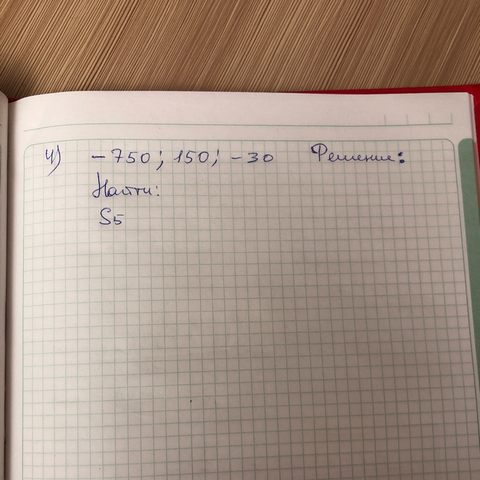 4) -750; 150; -30 Решение:
Найти:
S5